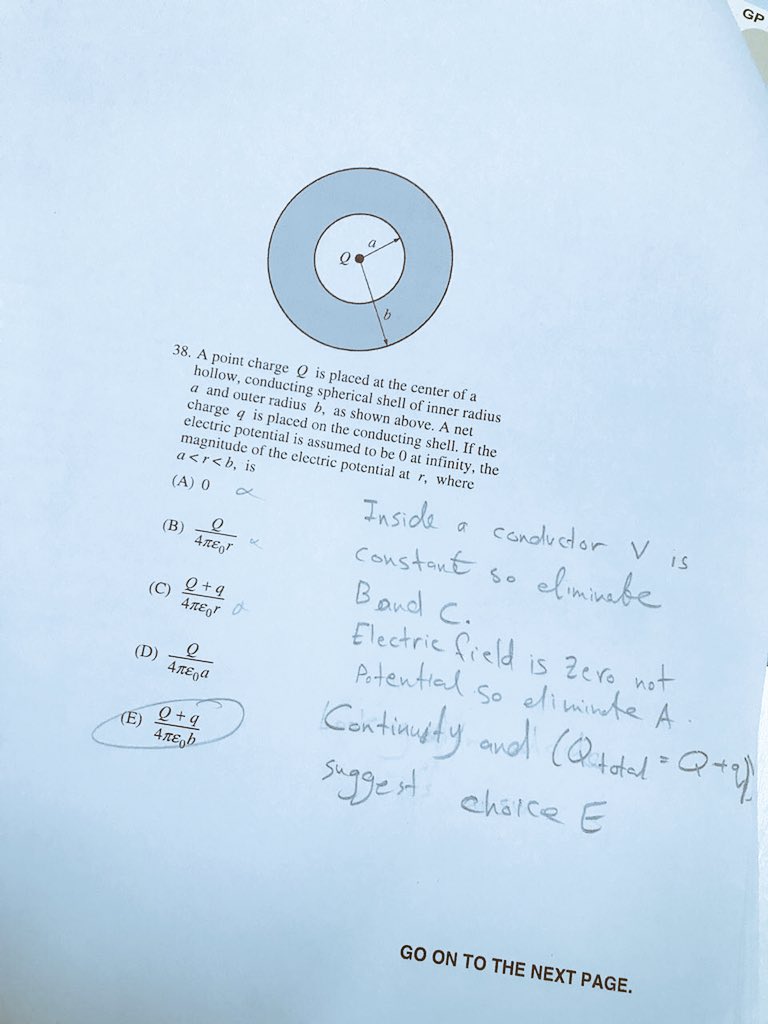 GP
Q
a
b
38. A point charge Q is placed at the center of a
hollow, conducting spherical shell of inner radius
a and outer radius b, as shown above. A net
charge q is placed on the conducting shell. If the
electric potential is assumed to be 0 at infinity, the
magnitude of the electric potential at r, where
a < r < b, is
(A) 0
(B) Q/4πε₀r
(C) Q + q/4πε₀r
(D) Q/4πε₀a
(E) Q + q/4πε₀b
Inside a conductor V is
constant so eliminate
B and C.
Electric field is zero not
Potential so eliminate A.
Continuity and (Qtotal = Q+q)
suggest choice E
GO ON TO THE NEXT PAGE.